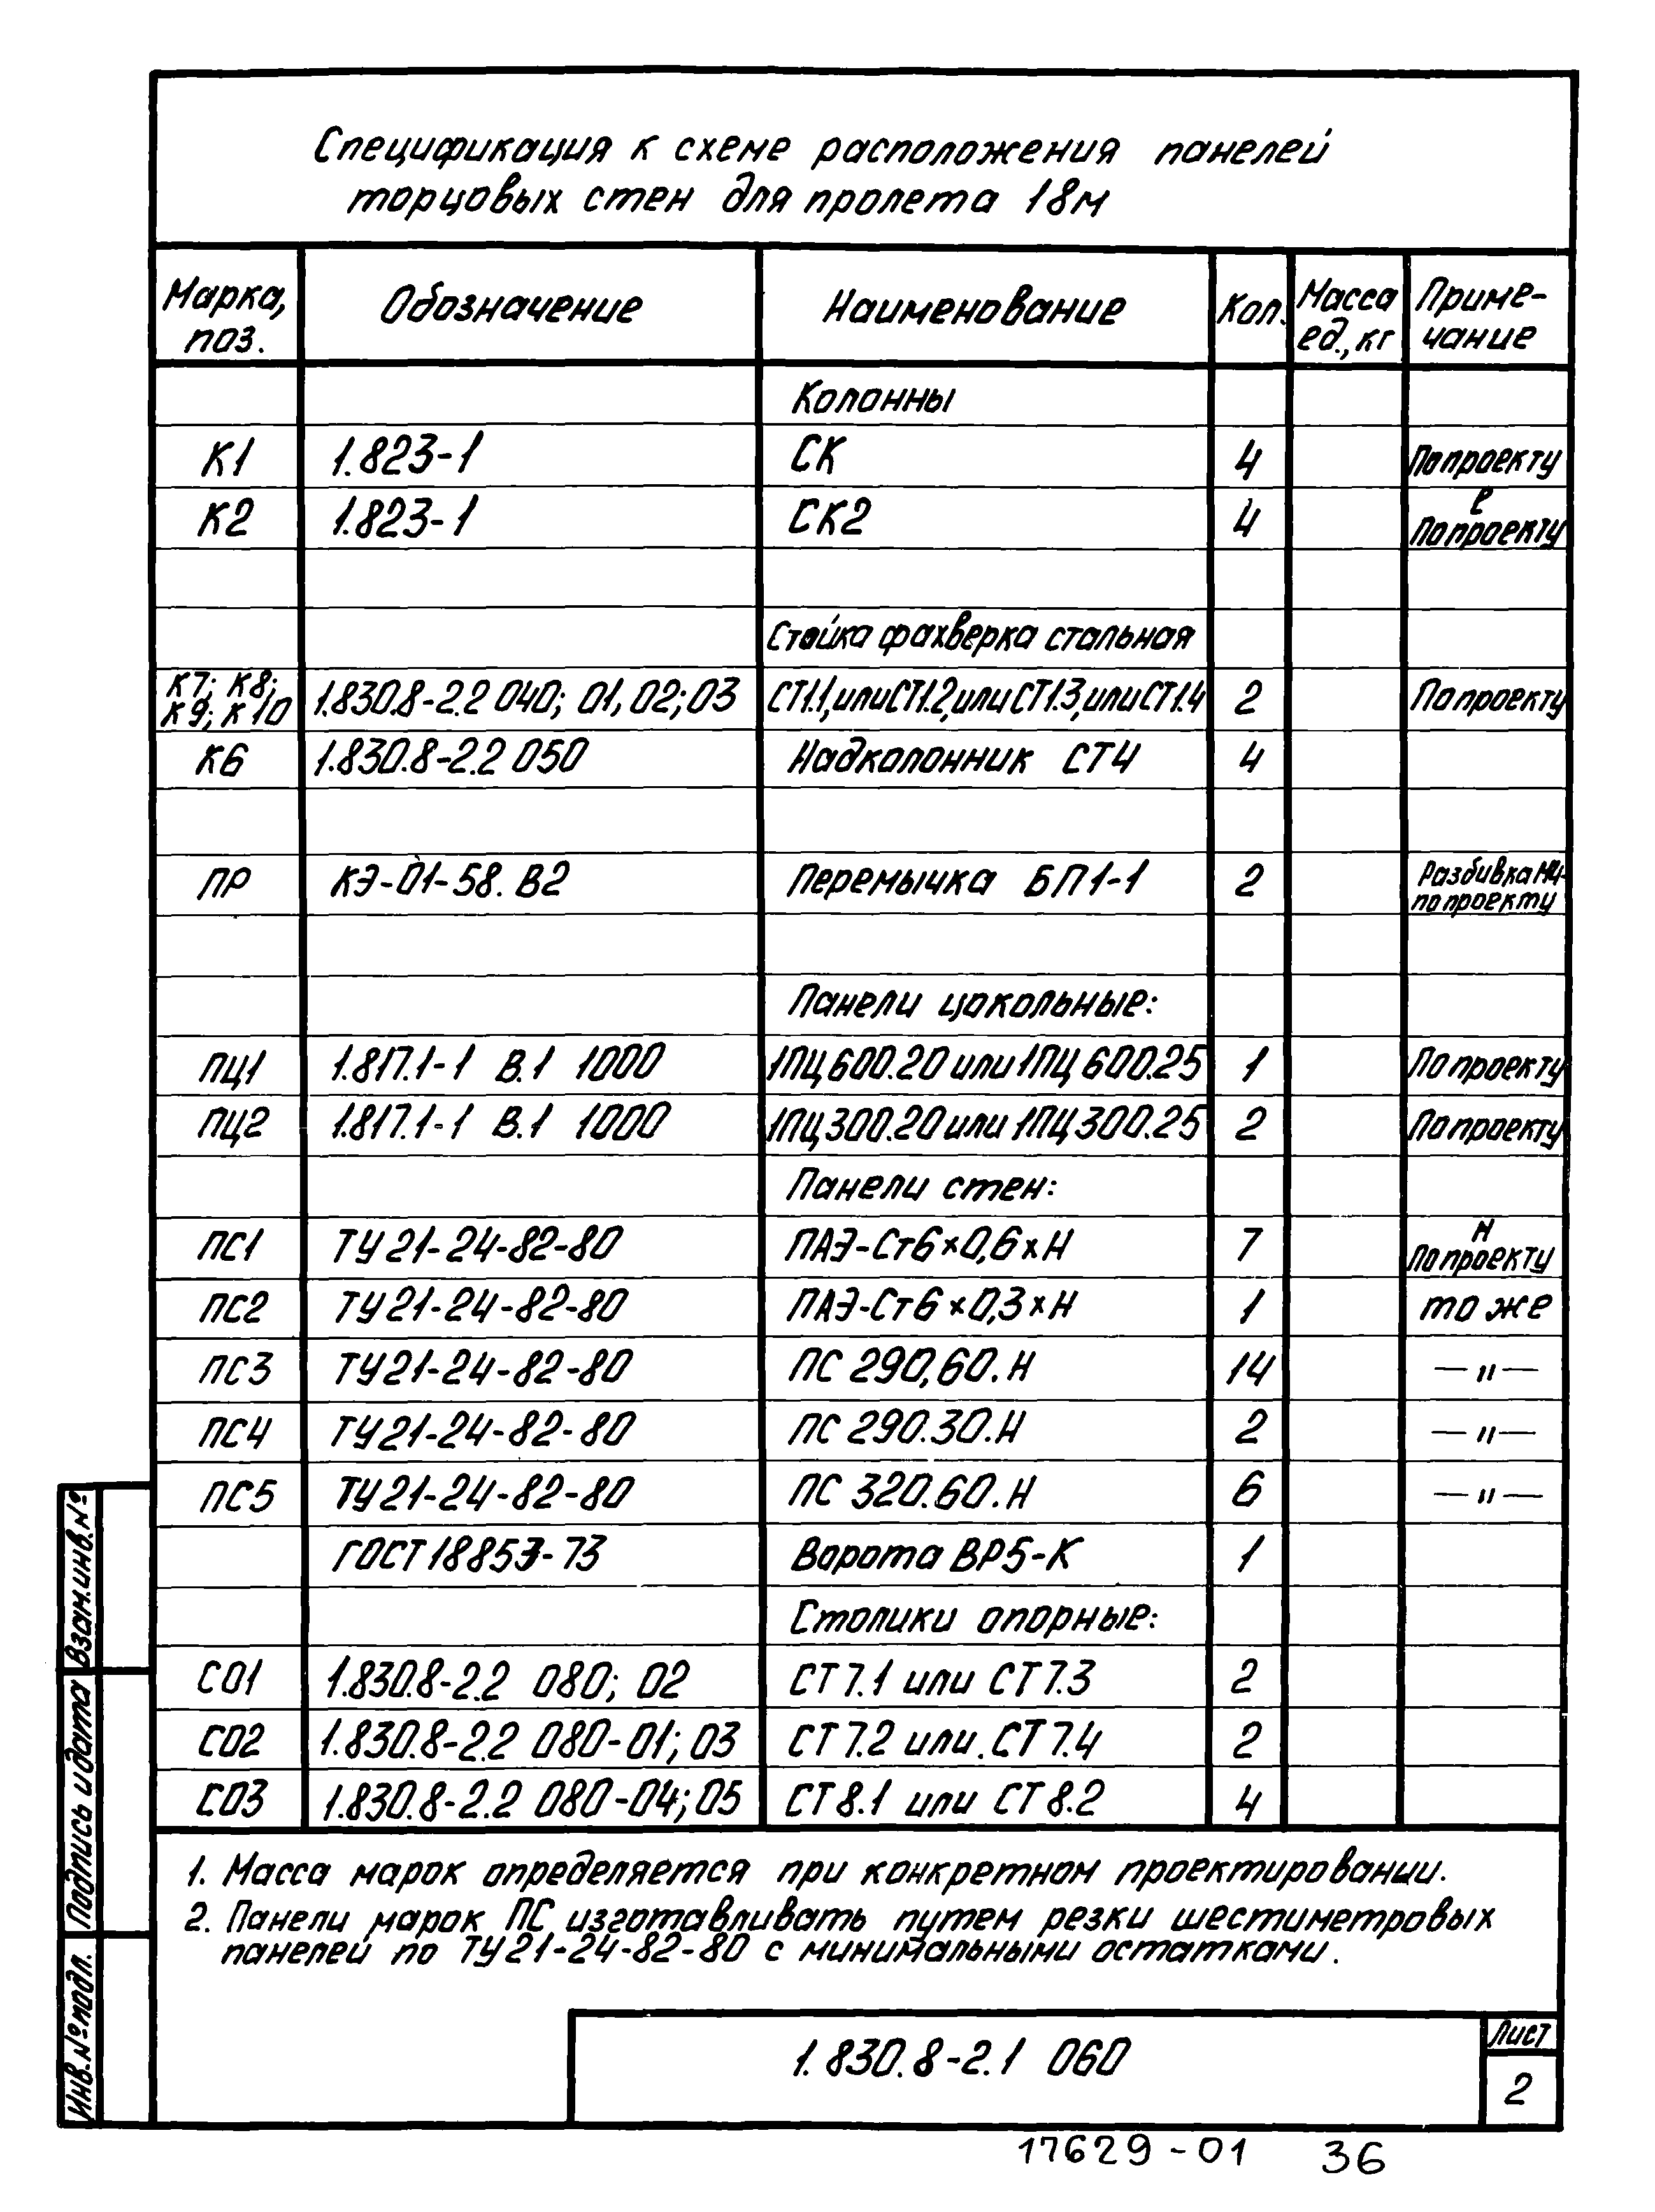 Спецификация к схеме расположения панелей
торцовых стен для пролета 18м
Марка, поз. Обозначение Наименование Кол. Масса ед., кг Приме-чание
Колонны
К1 1.823-1 СК 4 По проекту
К2 1.823-1 СК2 4 е По проекту
Стойка фахверка стальная
К7; К8; К9; К10 1.830.8-2.2 040; 01, 02; 03 СТ1.1, или СТ1.2, или СТ1.3, или СТ1.4 2 По проекту
К6 1.830.8-2.2 050 Надколонник СТ4 4
ПР КЭ-01-58. В2 Перемычка БП1-1 2 Разбивка по проекту
Панели цокольные:
ПЦ1 1.817.1-1 В.1 1000 1ПЦ600.20 или 1ПЦ600.25 1 По проекту
ПЦ2 1.817.1-1 В.1 1000 1ПЦ300.20 или 1ПЦ300.25 2 По проекту
Панели стен:
ПС1 ТУ21-24-82-80 ПАЭ-Ст6×0,6×Н 7 Н По проекту
ПС2 ТУ21-24-82-80 ПАЭ-Ст6×0,3×Н 1 то же
ПС3 ТУ21-24-82-80 ПС 290,60.Н 14 — " —
ПС4 ТУ21-24-82-80 ПС 290.30.Н 2 — " —
ПС5 ТУ21-24-82-80 ПС 320.60.Н 6 — " —
ГОСТ 18853-73 Ворота ВР5-К 1
Столики опорные:
СО1 1.830.8-2.2 080; 02 СТ7.1 или СТ7.3 2
СО2 1.830.8-2.2 080-01; 03 СТ7.2 или СТ7.4 2
СО3 1.830.8-2.2 080-04; 05 СТ8.1 или СТ8.2 4
1. Масса марок определяется при конкретном проектировании.
2. Панели марок ПС изготавливать путем резки шестиметровых
панелей по ТУ21-24-82-80 с минимальными остатками.
Взам.инв.№
Подпись и дата
Инв.№ подл.
1.830.8-2.1 060
Лист
2
17629-01 36